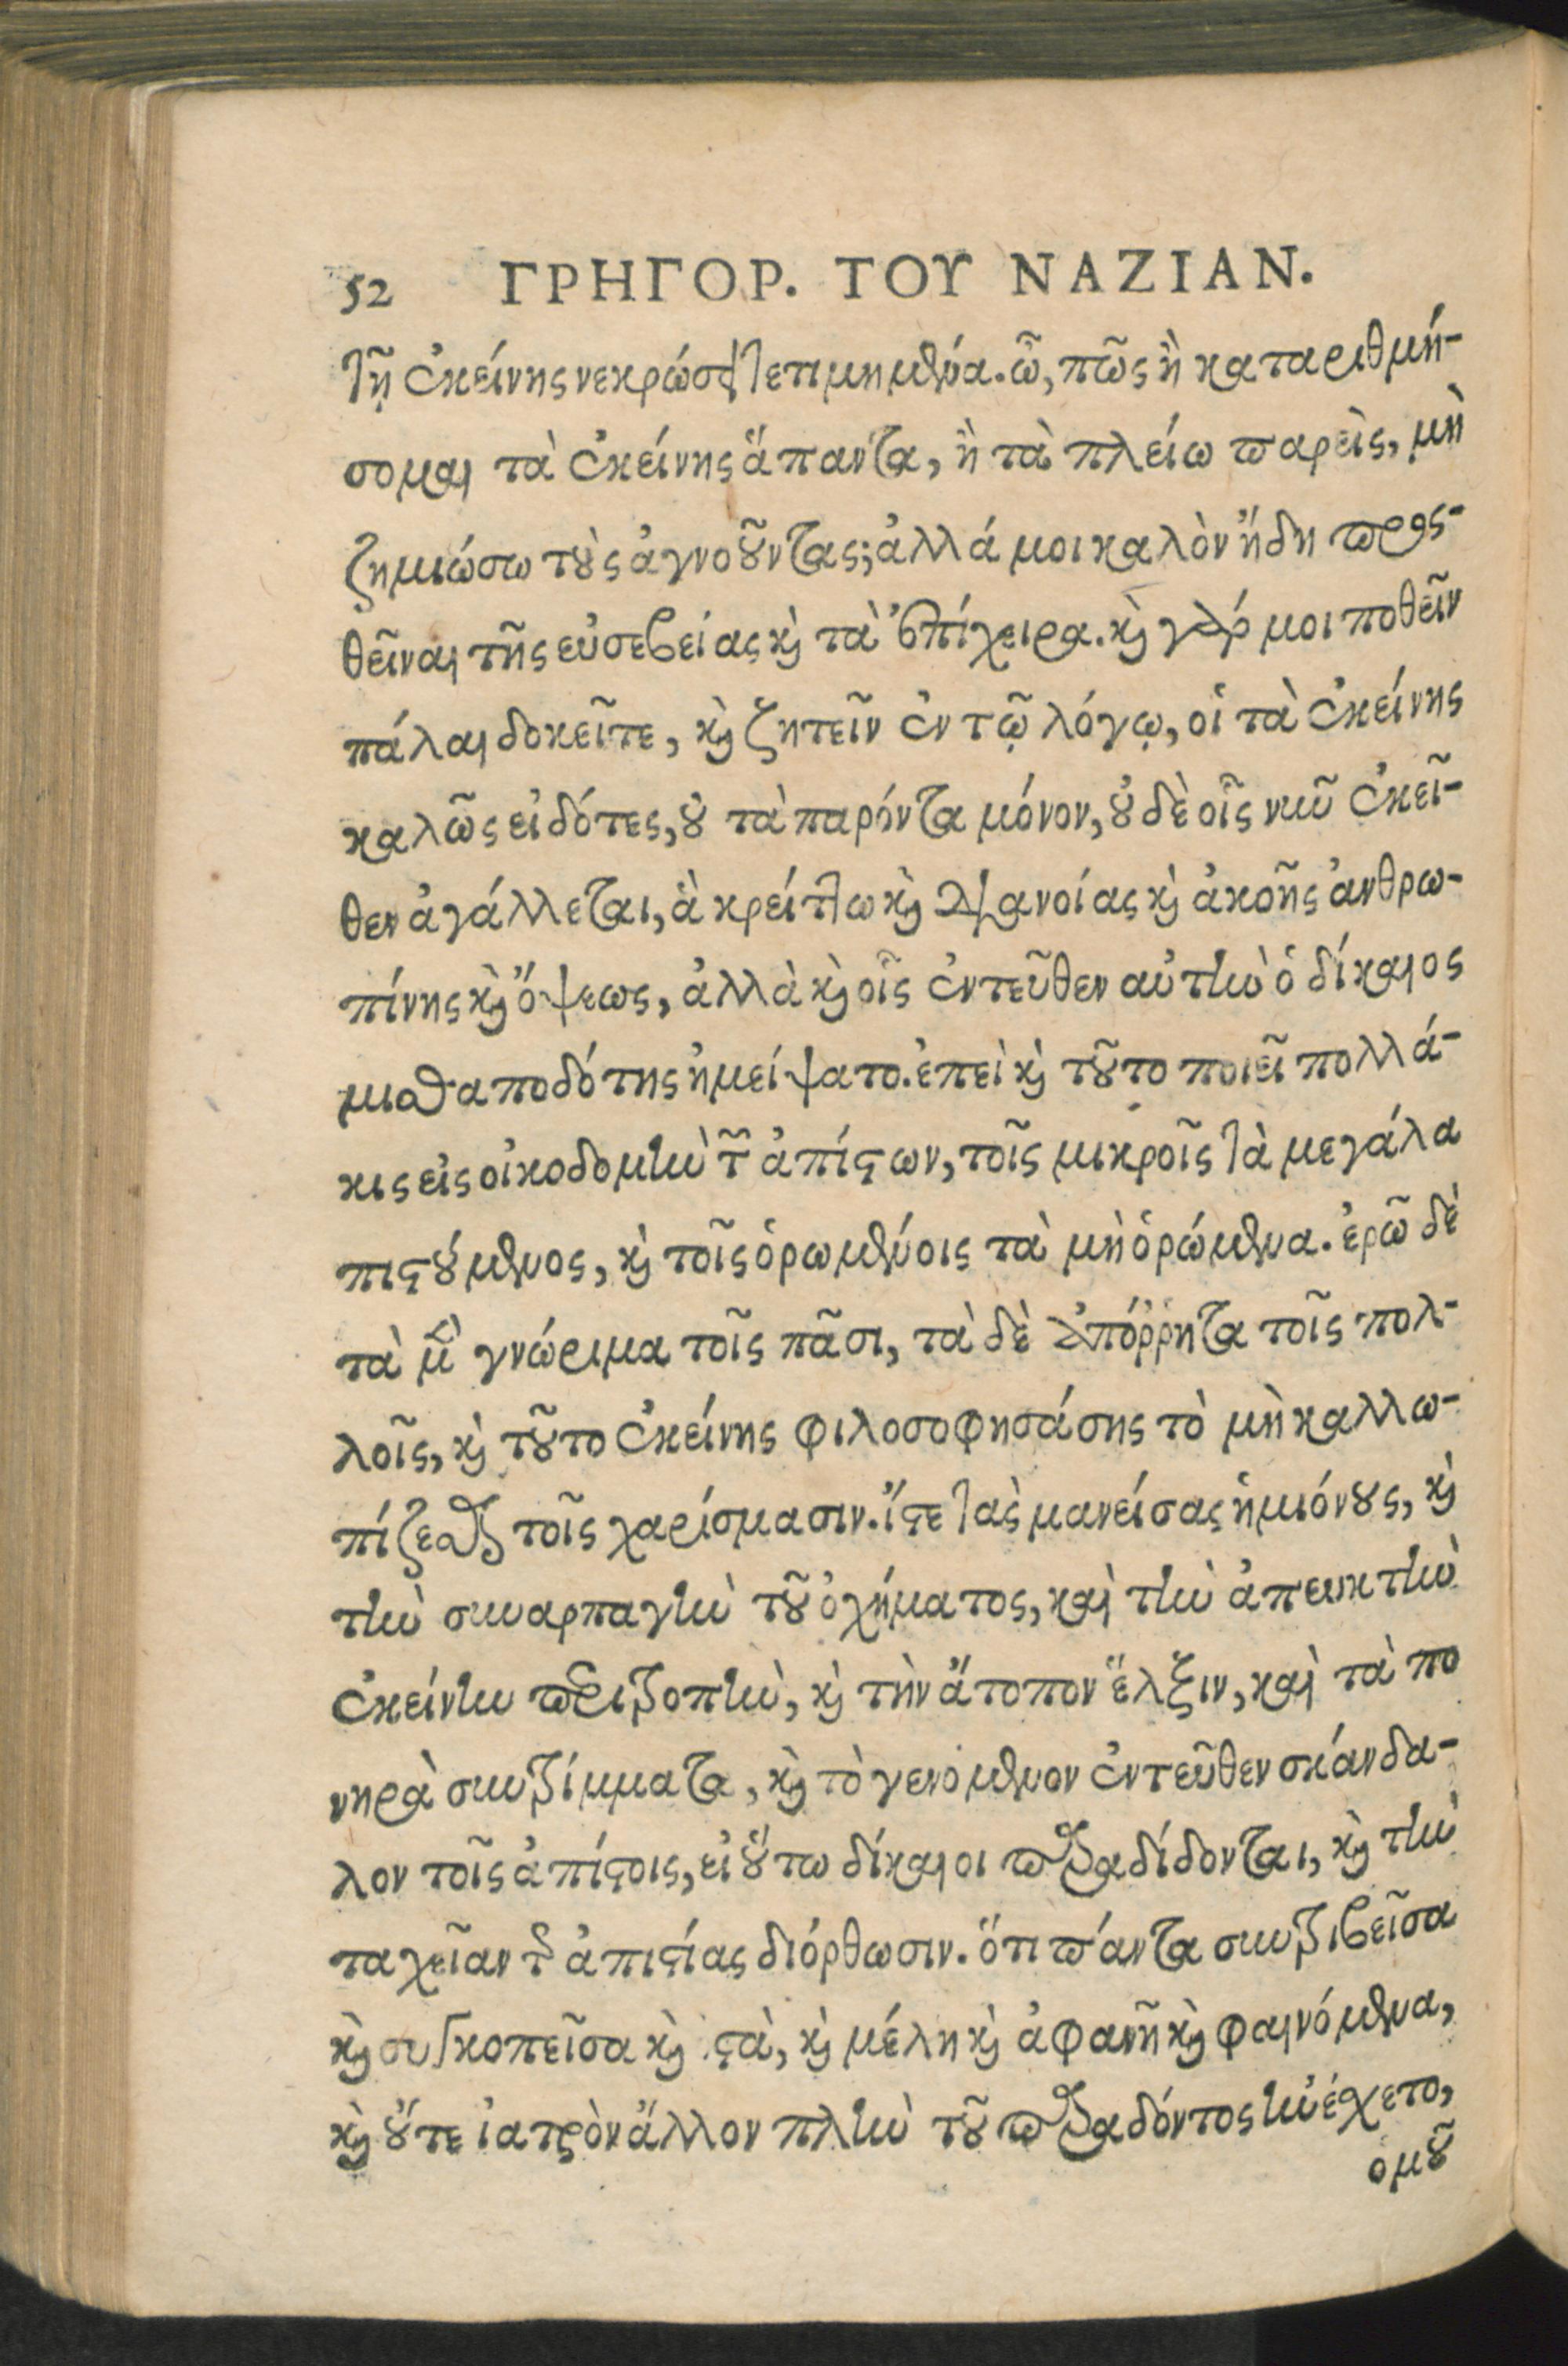 52 ΓΡΗΓΟΡ. ΤΟΥ ΝΑΖΙΑΝ.
τῇ ἐκείνης νεκρώσει τετιμημένα. ὦ, πῶς ἢ καταριθμή-
σομαι τὰ ἐκείνης ἅπαντα, ἢ τὰ πλείω παρεὶς, μὴ
ζημιώσω τοὺς ἀγνοοῦντας; ἀλλά μοι καλὸν ἤδη προς-
θεῖναι τῆς εὐσεβείας καὶ τὰ ἐπίχειρα. καὶ γάρ μοι ποθεῖν
πάλαι δοκεῖτε, καὶ ζητεῖν ἐν τῷ λόγῳ, οἱ τὰ ἐκείνης
καλῶς εἰδότες, οὐ τὰ παρόντα μόνον, οὐδὲ οἷς νῦν ἐκεῖ-
θεν ἀγάλλεται, ἃ κρείττω καὶ διανοίας καὶ ἀκοῆς ἀνθρω-
πίνης καὶ ὄψεως, ἀλλὰ καὶ οἷς ἐντεῦθεν αὐτὴν ὁ δίκαιος
μισθαποδότης ἠμείψατο. ἐπεὶ καὶ τοῦτο ποιεῖ πολλά-
κις εἰς οἰκοδομὴν τῶν ἀπίστων, τοῖς μικροῖς τὰ μεγάλα
πιστούμενος, καὶ τοῖς ὁρωμένοις τὰ μὴ ὁρώμενα. ἐρῶ δὲ
τὰ μὲν γνώριμα τοῖς πᾶσι, τὰ δὲ ἀπόῤῥητα τοῖς πολ-
λοῖς, καὶ τοῦτο ἐκείνης φιλοσοφησάσης τὸ μὴ καλλω-
πίζεσθαι τοῖς χαρίσμασιν. ἴστε τὰς μανείσας ἡμιόνους, καὶ
τὴν συναρπαγὴν τοῦ ὀχήματος, καὶ τὴν ἀπευκτὴν
ἐκείνην περιτροπὴν, καὶ τὴν ἄτοπον ἕλξιν, καὶ τὰ πο
νηρὰ συντρίμματα, καὶ τὸ γενόμενον ἐντεῦθεν σκάνδα-
λον τοῖς ἀπίστοις, εἰ οὕτω δίκαιοι παραδίδονται, καὶ τὴν
ταχεῖαν τῆς ἀπιστίας διόρθωσιν. ὅτι πάντα συντριβεῖσα
καὶ συγκοπεῖσα καὶ ὀστὰ, καὶ μέλη καὶ ἀφανῆ καὶ φαινόμενα,
καὶ οὔτε ἰατρὸν ἄλλον πλὴν τοῦ παραδόντος ἠνέχετο,
ὁμοῦ